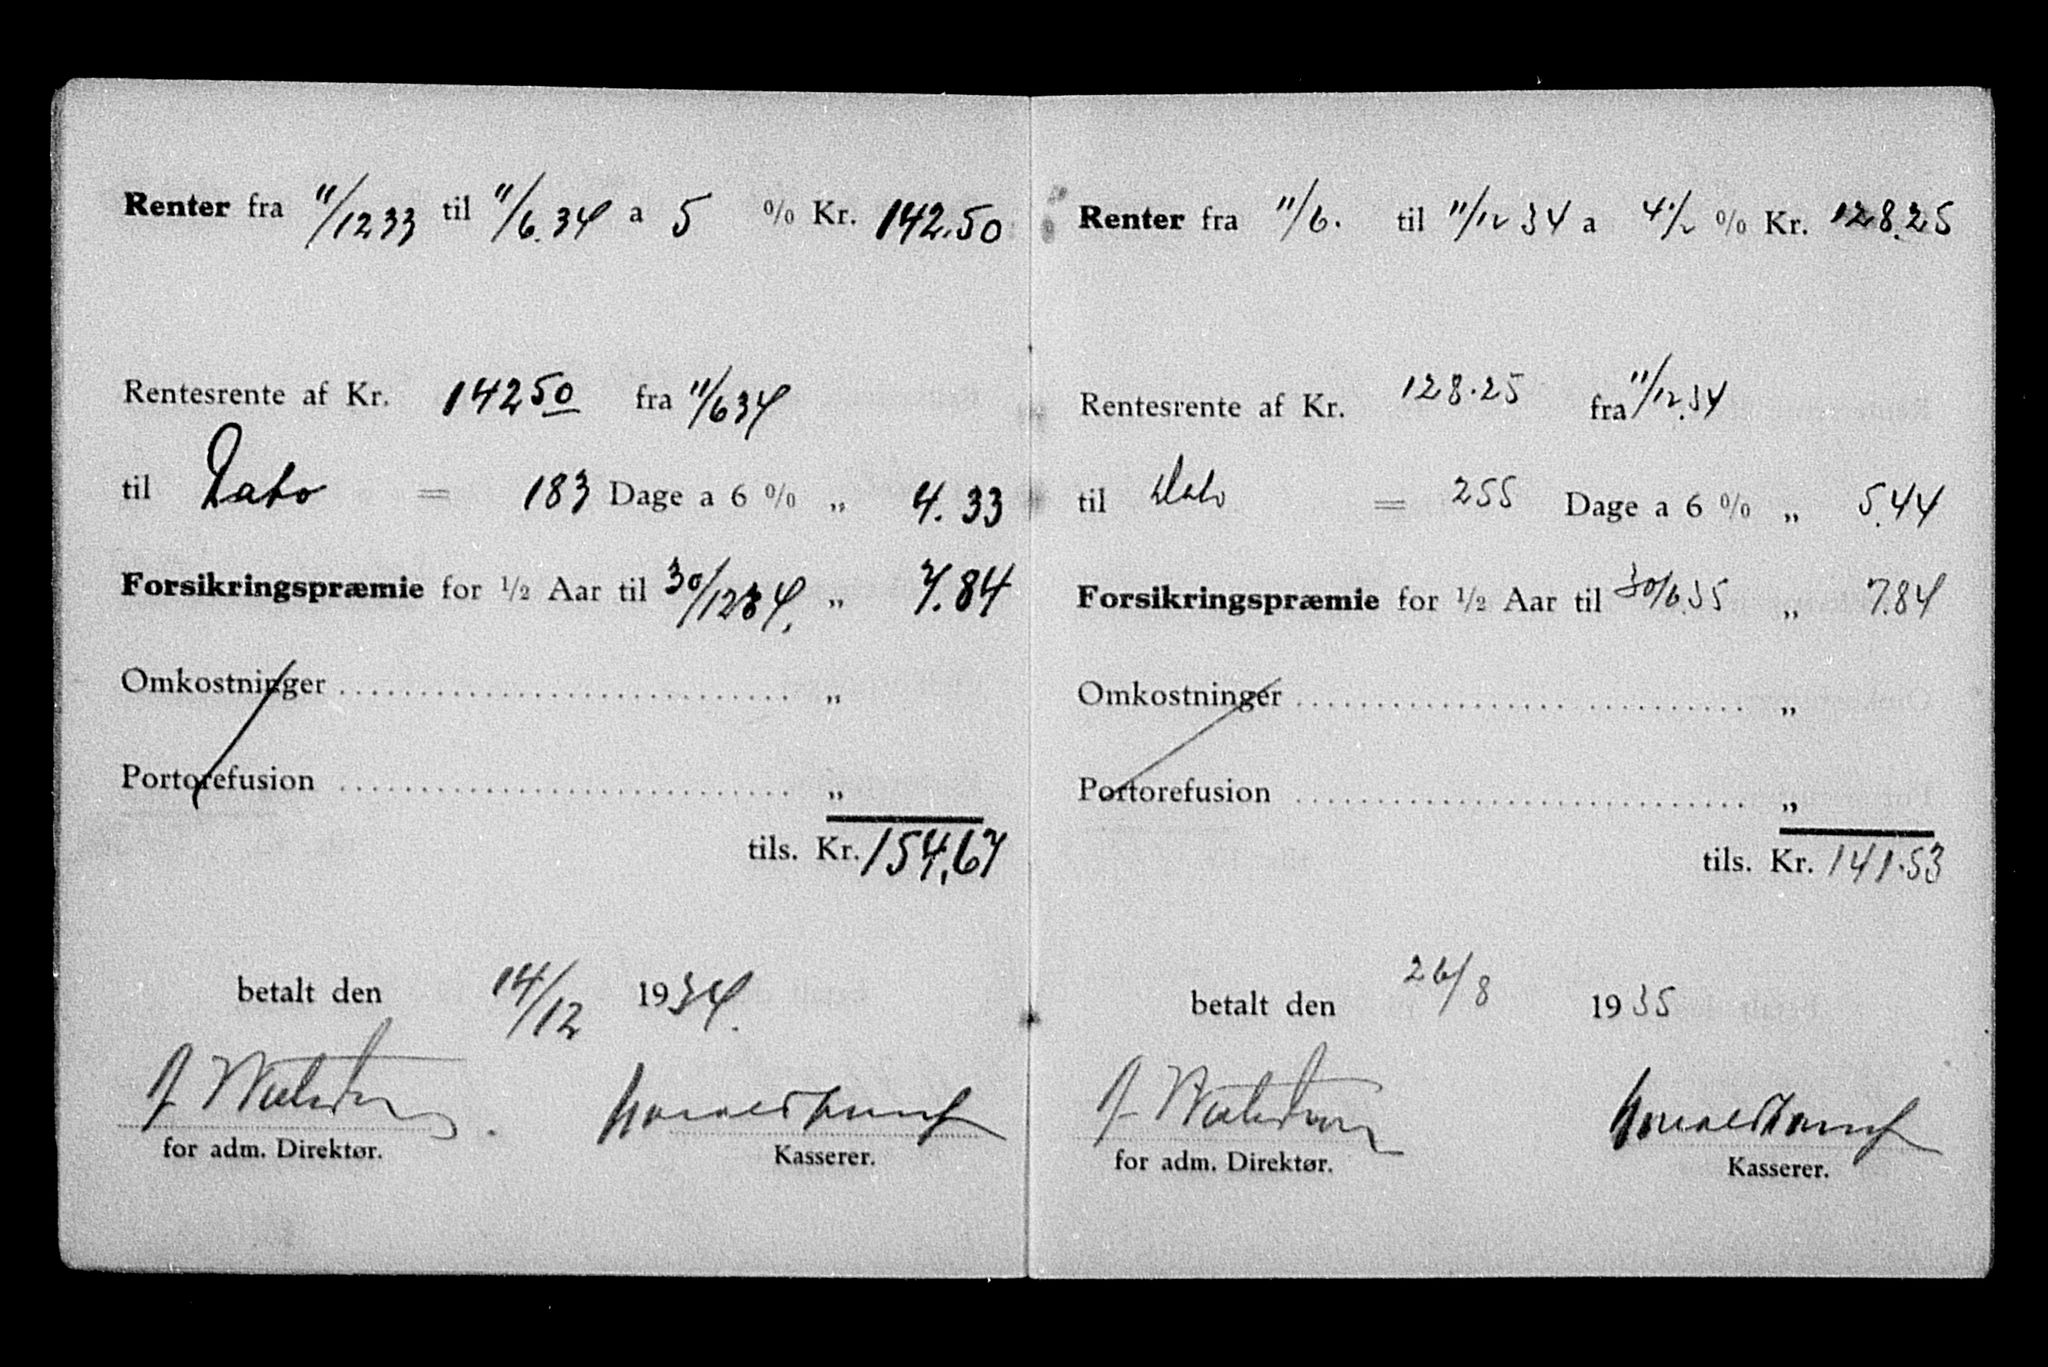 Renter fra 11/12 33 til 11/6.34 a 5 % Kr. 142.50
Rentesrente af Kr. 142 50 fra 11/6 34
til Dato = 183 Dage a 6 % „ 4.33
Forsikringspræmie for 1/2 Aar til 30/12 34. „ 7.84
Omkostninger „
Portorefusion „
tils. Kr. 154,67
betalt den 14/12 1934.
for adm. Direktør. Kasserer.
Renter fra 11/6. til 11/12 34 a 4 1/2 % Kr. 128.25
Rentesrente af Kr. 128.25 fra 11/12.34
til Dato = 255 Dage a 6 % „ 5.44
Forsikringspræmie for 1/2 Aar til 30/6.35 „ 7.84
Omkostninger „
Portorefusion „
tils. Kr. 141.53
betalt den 26/8 1935
for adm. Direktør. Kasserer.